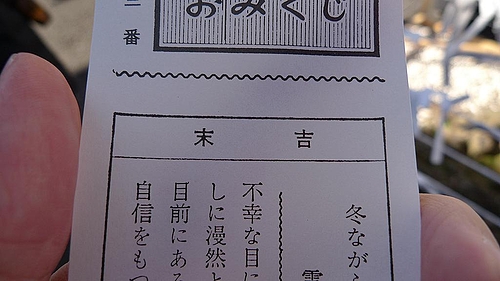 二番
おみくじ
末吉
冬ながら
雲
不幸な目に
しに漫然と
目前にある
自信をもつ